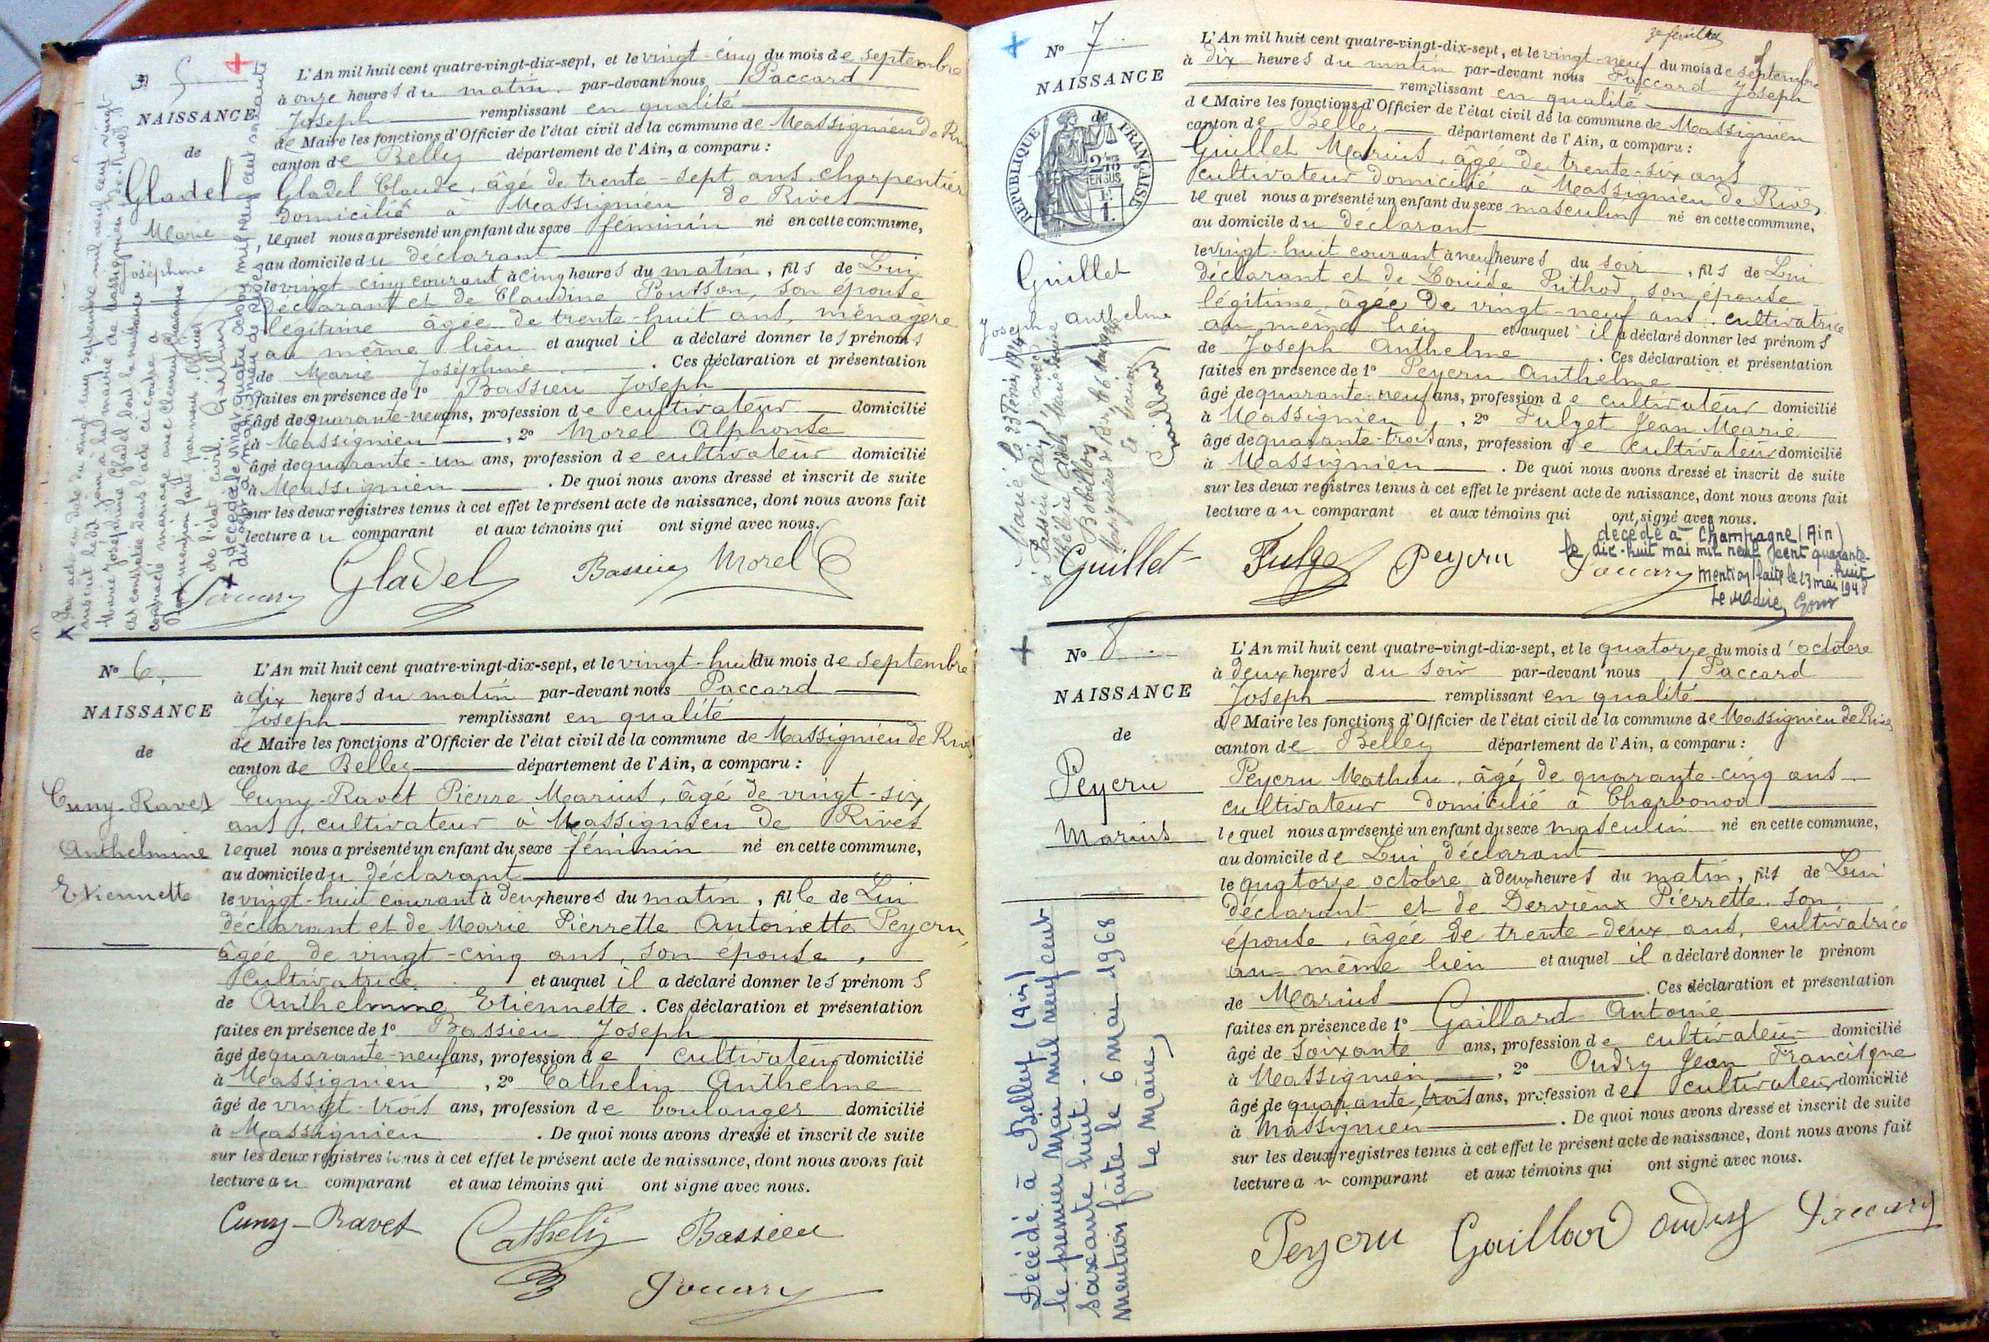 N° 5
NAISSANCE
de
Gladel
Marie
Joséphine
L'An mil huit cent quatre-vingt-dix-sept, et le vingt-cinq du mois de septembre
à onze heures du matin par-devant nous Paccard
Joseph remplissant en qualité
de Maire les fonctions d'Officier de l'état civil de la commune de Massignieu de Rives
canton de Belley département de l'Ain, a comparu :
Gladel Claude, âgé de trente-sept ans, charpentier
domicilié à Massignieu de Rives
lequel nous a présenté un enfant du sexe féminin né en cette commune,
au domicile du déclarant
le vingt cinq courant à cinq heures du matin, fils de Lui
déclarant et de Claudine Pousson, son épouse
légitime âgée de trente-huit ans, ménagère
au même lieu et auquel il a déclaré donner les prénoms
de Marie Joséphine. Ces déclaration et présentation
faites en présence de 1° Bassieu Joseph
âgé de quarante-neuf ans, profession de cultivateur domicilié
à Massignieu, 2° Morel Alphonse
âgé de quarante-un ans, profession de cultivateur domicilié
à Massignieu. De quoi nous avons dressé et inscrit de suite
sur les deux registres tenus à cet effet le présent acte de naissance, dont nous avons fait
lecture au comparant et aux témoins qui ont signé avec nous.
Paccard Gladel Bassieu Morel
N° 6.
NAISSANCE
de
Cuny-Ravet
Anthelmine
Etiennette
L'An mil huit cent quatre-vingt-dix-sept, et le vingt-huit du mois de septembre
à dix heures du matin par-devant nous Paccard
Joseph remplissant en qualité
de Maire les fonctions d'Officier de l'état civil de la commune de Massignieu de Rives
canton de Belley département de l'Ain, a comparu :
Cuny-Ravet Pierre Marius, âgé de vingt-six
ans, cultivateur à Massignieu de Rives
lequel nous a présenté un enfant du sexe féminin né en cette commune,
au domicile du déclarant
le vingt-huit courant à deux heures du matin, fille de Lui
déclarant et de Marie Pierrette Antoinette Peycru,
âgée de vingt-cinq ans, son épouse,
cultivatrice et auquel il a déclaré donner les prénoms
de Anthelmine Etiennette. Ces déclaration et présentation
faites en présence de 1° Bassieu Joseph
âgé de quarante-neuf ans, profession de cultivateur domicilié
à Massignieu, 2° Cathelin Anthelme
âgé de vingt-trois ans, profession de boulanger domicilié
à Massignieu. De quoi nous avons dressé et inscrit de suite
sur les deux registres tenus à cet effet le présent acte de naissance, dont nous avons fait
lecture au comparant et aux témoins qui ont signé avec nous.
Cuny-Ravet Cathelin Bassieu
Paccard
3e feuillet
N° 7
NAISSANCE
de
RÉPUBLIQUE FRANÇAISE
2/10 EN SUS
Guillet
Joseph Anthelme
L'An mil huit cent quatre-vingt-dix-sept, et le vingt-neuf du mois de septembre
à dix heures du matin par-devant nous Paccard Joseph
remplissant en qualité
de Maire les fonctions d'Officier de l'état civil de la commune de Massignieu
canton de Belley département de l'Ain, a comparu :
Guillet Marius, âgé de trente-six ans
cultivateur domicilié à Massignieu de Rives,
lequel nous a présenté un enfant du sexe masculin né en cette commune,
au domicile du déclarant
le vingt-huit courant à neuf heures du soir, fils de Lui
déclarant et de Louise Puthod son épouse
légitime, âgée de vingt-neuf ans, cultivatrice
au même lieu et auquel il a déclaré donner les prénoms
de Joseph Anthelme. Ces déclaration et présentation
faites en présence de 1° Peycru Anthelme
âgé de quarante-neuf ans, profession de cultivateur domicilié
à Massignieu, 2° Fulget Jean Marie
âgé de quarante-trois ans, profession de cultivateur domicilié
à Massignieu. De quoi nous avons dressé et inscrit de suite
sur les deux registres tenus à cet effet le présent acte de naissance, dont nous avons fait
lecture au comparant et aux témoins qui ont signé avec nous.
Guillet Fulget Peycru Paccard
décédé à Champagne (Ain)
le dix-huit mai mil neuf cent quarante-
huit
Mention faite le 23 mai 1948
Le Maire,
N° 8
NAISSANCE
de
Peycru
Marius
Décédé à Belley (Ain)
le premier mai mil neuf cent
soixante huit.
Mention faite le 6 mai 1968
Le Maire,
L'An mil huit cent quatre-vingt-dix-sept, et le quatorze du mois d'octobre
à deux heures du soir par-devant nous Paccard
Joseph remplissant en qualité
de Maire les fonctions d'Officier de l'état civil de la commune de Massignieu de Rives
canton de Belley département de l'Ain, a comparu :
Peycru Mathieu, âgé de quarante-cinq ans
cultivateur domicilié à Charbonod
lequel nous a présenté un enfant du sexe masculin né en cette commune,
au domicile de Lui déclarant
le quatorze octobre à deux heures du matin, fils de Lui
déclarant et de Dervieux Pierrette, son
épouse, âgée de trente-deux ans, cultivatrice
au même lieu et auquel il a déclaré donner le prénom
de Marius. Ces déclaration et présentation
faites en présence de 1° Gaillard Antoine
âgé de soixante ans, profession de cultivateur domicilié
à Massignieu, 2° Oudry Jean Francisque
âgé de quarante trois ans, profession de cultivateur domicilié
à Massignieu. De quoi nous avons dressé et inscrit de suite
sur les deux registres tenus à cet effet le présent acte de naissance, dont nous avons fait
lecture au comparant et aux témoins qui ont signé avec nous.
Peycru Gaillard Oudry Paccard